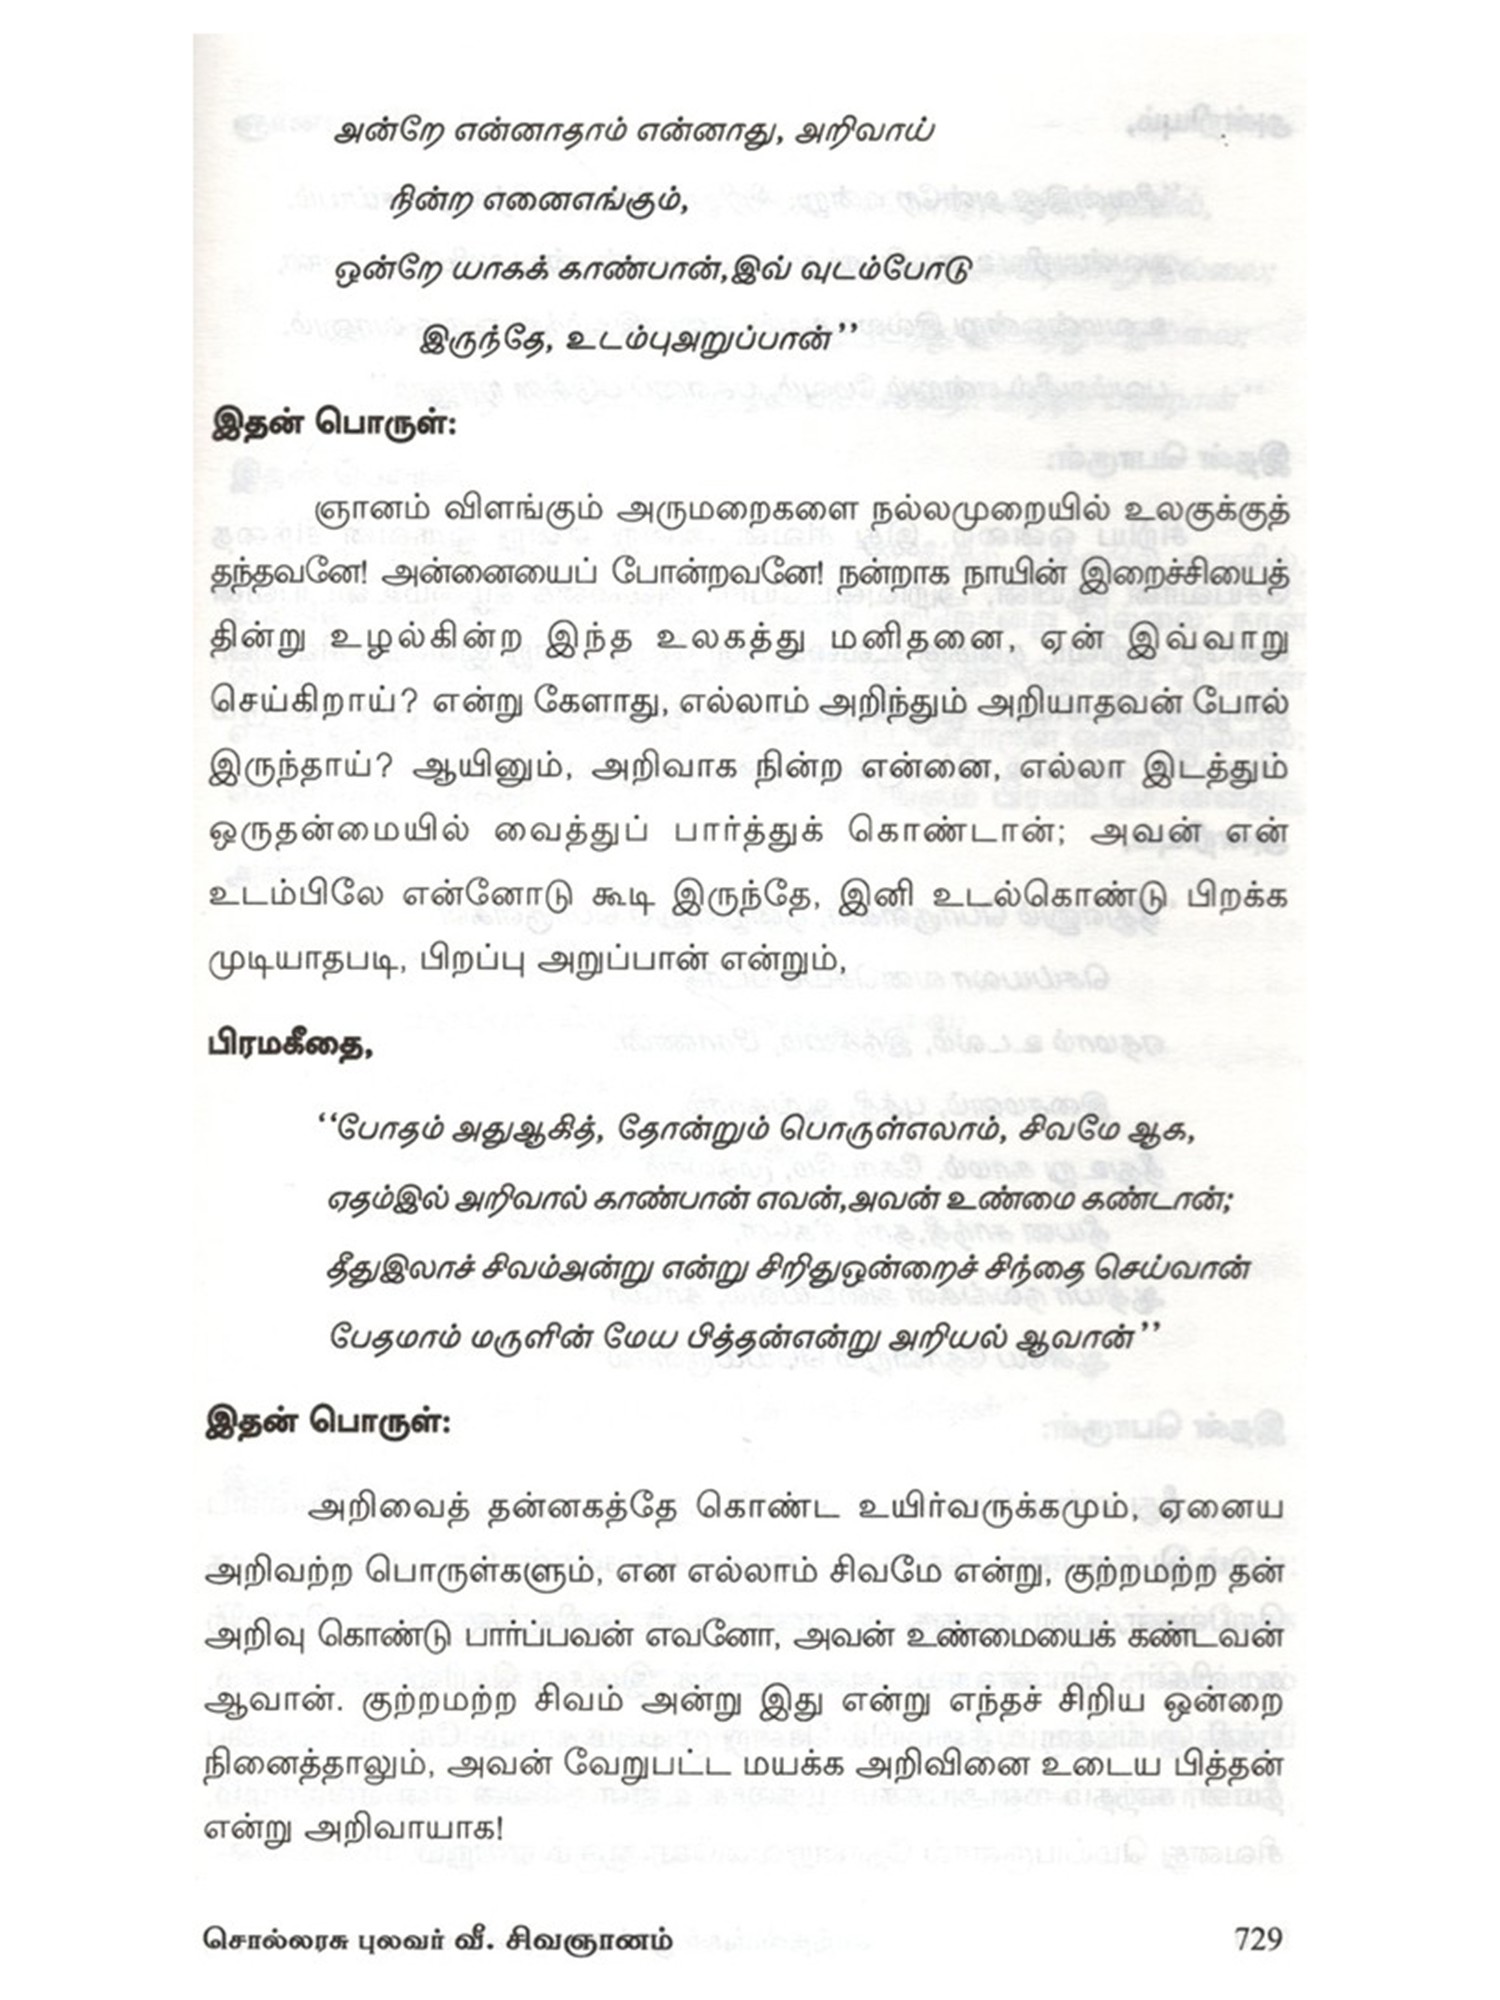 அன்றே என்னாதாம் என்னாது, அறிவாய்
நின்ற எனைஎங்கும்,
ஒன்றே யாகக் காண்பான்,இவ் வுடம்போடு
இருந்தே, உடம்புஅறுப்பான்’’
இதன் பொருள்:
ஞானம் விளங்கும் அருமறைகளை நல்லமுறையில் உலகுக்குத்
தந்தவனே! அன்னையைப் போன்றவனே! நன்றாக நாயின் இறைச்சியைத்
தின்று உழல்கின்ற இந்த உலகத்து மனிதனை, ஏன் இவ்வாறு
செய்கிறாய்? என்று கேளாது, எல்லாம் அறிந்தும் அறியாதவன் போல்
இருந்தாய்? ஆயினும், அறிவாக நின்ற என்னை, எல்லா இடத்தும்
ஒருதன்மையில் வைத்துப் பார்த்துக் கொண்டான்; அவன் என்
உடம்பிலே என்னோடு கூடி இருந்தே, இனி உடல்கொண்டு பிறக்க
முடியாதபடி, பிறப்பு அறுப்பான் என்றும்,
பிரமகீதை,
‘‘போதம் அதுஆகித், தோன்றும் பொருள்எலாம், சிவமே ஆக,
ஏதம்இல் அறிவால் காண்பான் எவன்,அவன் உண்மை கண்டான்;
தீதுஇலாச் சிவம்அன்று என்று சிறிதுஒன்றைச் சிந்தை செய்வான்
பேதமாம் மருளின் மேய பித்தன்என்று அறியல் ஆவான்’’
இதன் பொருள்:
அறிவைத் தன்னகத்தே கொண்ட உயிர்வருக்கமும், ஏனைய
அறிவற்ற பொருள்களும், என எல்லாம் சிவமே என்று, குற்றமற்ற தன்
அறிவு கொண்டு பார்ப்பவன் எவனோ, அவன் உண்மையைக் கண்டவன்
ஆவான். குற்றமற்ற சிவம் அன்று இது என்று எந்தச் சிறிய ஒன்றை
நினைத்தாலும், அவன் வேறுபட்ட மயக்க அறிவினை உடைய பித்தன்
என்று அறிவாயாக!
சொல்லரசு புலவர் வீ. சிவஞானம் 729